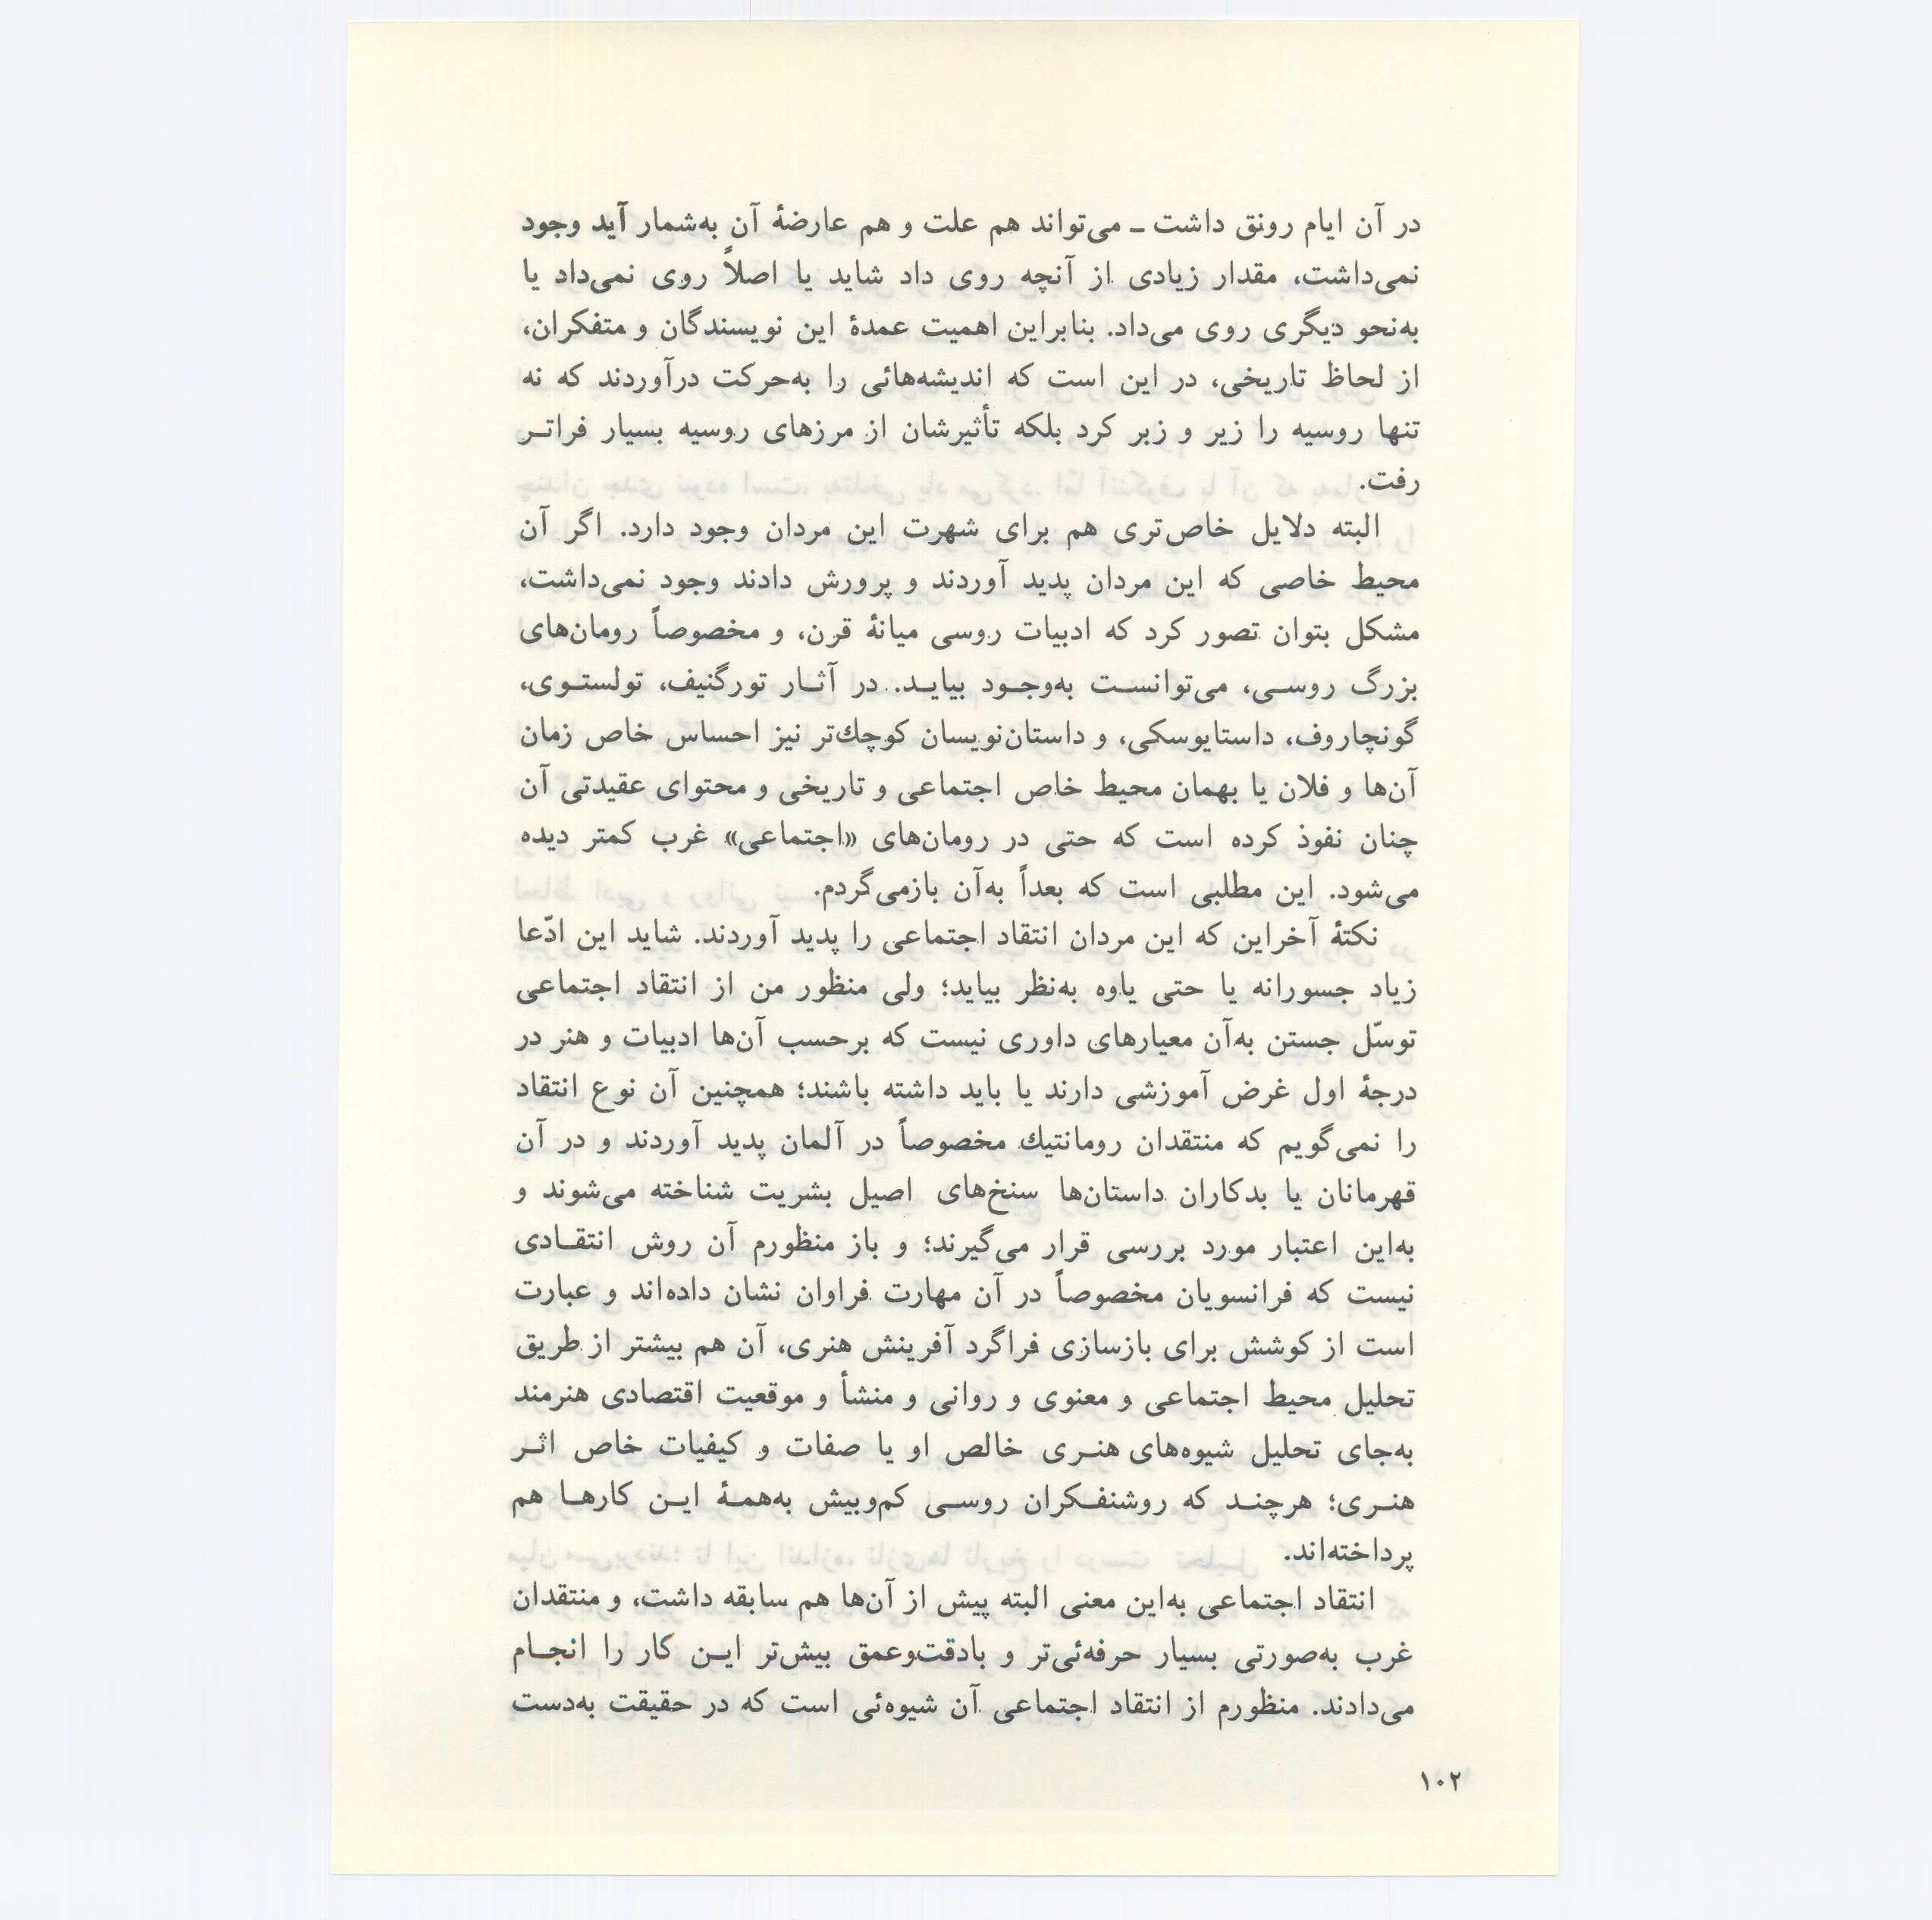 در آن ایام رونق داشت ـ می‌تواند هم علت و هم عارضهٔ آن به‌شمار آید وجود
نمی‌داشت، مقدار زیادی از آنچه روی داد شاید یا اصلاً روی نمی‌داد یا
به‌نحو دیگری روی می‌داد. بنابراین اهمیت عمدهٔ این نویسندگان و متفکران،
از لحاظ تاریخی، در این است که اندیشه‌هائی را به‌حرکت درآوردند که نه
تنها روسیه را زیر و زبر کرد بلکه تأثیرشان از مرزهای روسیه بسیار فراتــر
رفت.
البته دلایل خاص‌تری هم برای شهرت این مردان وجود دارد. اگر آن
محیط خاصی که این مردان پدید آوردند و پرورش دادند وجود نمی‌داشت،
مشکل بتوان تصور کرد که ادبیات روسی میانهٔ قرن، و مخصوصاً رومان‌های
بزرگ روســی، می‌توانســت به‌وجــود بیایــد. در آثــار تورگنیف، تولستــوی،
گونچاروف، داستایوسکی، و داستان‌نویسان کوچك‌تر نیز احساس خاص زمان
آن‌ها و فلان یا بهمان محیط خاص اجتماعی و تاریخی و محتوای عقیدتی آن
چنان نفوذ کرده است که حتی در رومان‌های «اجتماعی» غرب کمتر دیده
می‌شود. این مطلبی است که بعداً به‌آن بازمی‌گردم.
نکتهٔ آخراین که این مردان انتقاد اجتماعی را پدید آوردند. شاید این ادّعا
زیاد جسورانه یا حتی یاوه به‌نظر بیاید؛ ولی منظور من از انتقاد اجتماعی
توسّل جستن به‌آن معیارهای داوری نیست که برحسب آن‌ها ادبیات و هنر در
درجهٔ اول غرض آموزشی دارند یا باید داشته باشند؛ همچنین آن نوع انتقاد
را نمی‌گویم که منتقدان رومانتیك مخصوصاً در آلمان پدید آوردند و در آن
قهرمانان یا بدکاران داستان‌ها سنخ‌های اصیل بشریت شناخته می‌شوند و
به‌این اعتبار مورد بررسی قرار می‌گیرند؛ و باز منظورم آن روش انتقــادی
نیست که فرانسویان مخصوصاً در آن مهارت فراوان نشان داده‌اند و عبارت
است از کوشش برای بازسازی فراگرد آفرینش هنری، آن هم بیشتر از طریق
تحلیل محیط اجتماعی و معنوی و روانی و منشأ و موقعیت اقتصادی هنرمند
به‌جای تحلیل شیوه‌های هنــری خالص او یا صفات و کیفیات خاص اثــر
هنــری؛ هرچنــد که روشنفــکران روســی کم‌وبیش به‌همــهٔ ایــن کارهــا هم
پرداخته‌اند.
انتقاد اجتماعی به‌این معنی البته پیش از آن‌ها هم سابقه داشت، و منتقدان
غرب به‌صورتی بسیار حرفه‌ئی‌تر و بادقت‌وعمق بیش‌تر ایــن کار را انجــام
می‌دادند. منظورم از انتقاد اجتماعی آن شیوه‌ئی است که در حقیقت به‌دست
۱۰۲